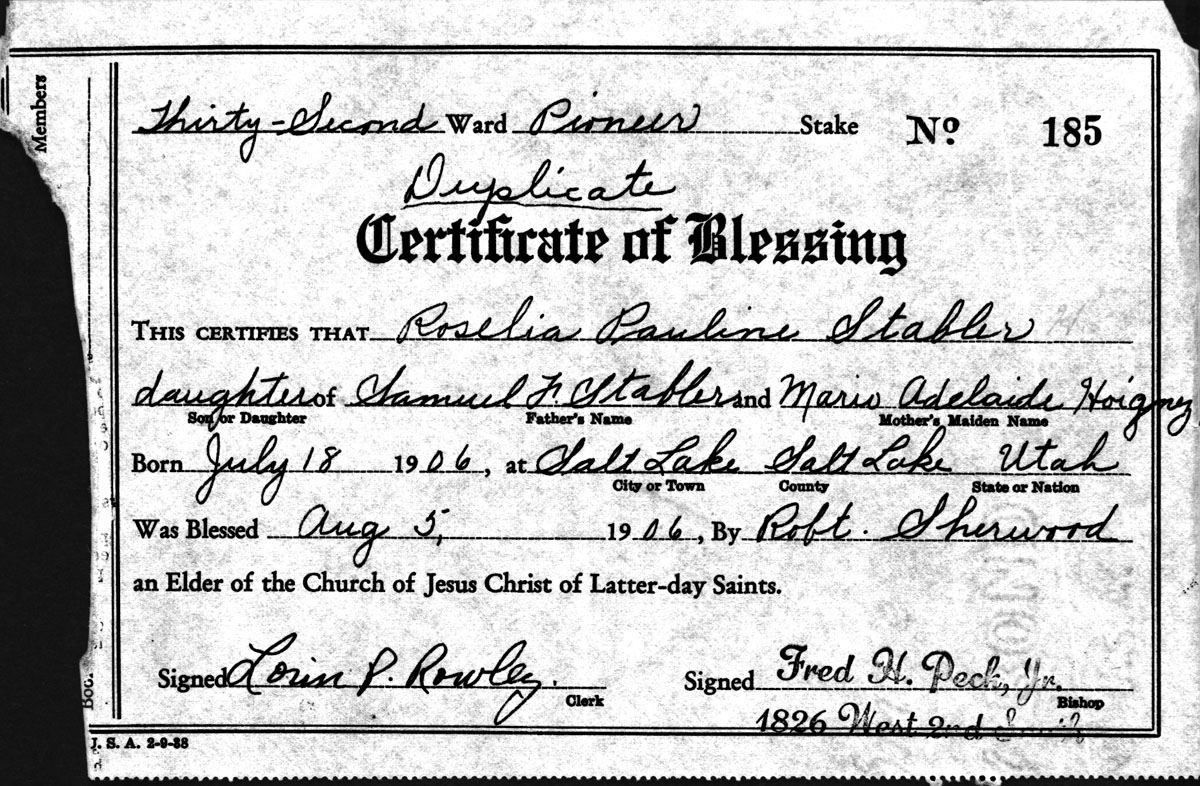 Members
Thirty-Second Ward Pioneer Stake No. 185
Duplicate
Certificate of Blessing
THIS CERTIFIES THAT Roselia Pauline Stabler
daughter of Samuel F. Stabler and Marie Adelaide Hoigny
Son or Daughter Father's Name Mother's Maiden Name
Born July 18 1906, at Salt Lake Salt Lake Utah
City or Town County State or Nation
Was Blessed Aug 5, 1906, By Robt. Sherwood
an Elder of the Church of Jesus Christ of Latter-day Saints.
Signed Lorin P. Rowley. Signed Fred H. Peck, Jr.
Clerk Bishop
1826 West 2nd South
S. A. 2-9-38